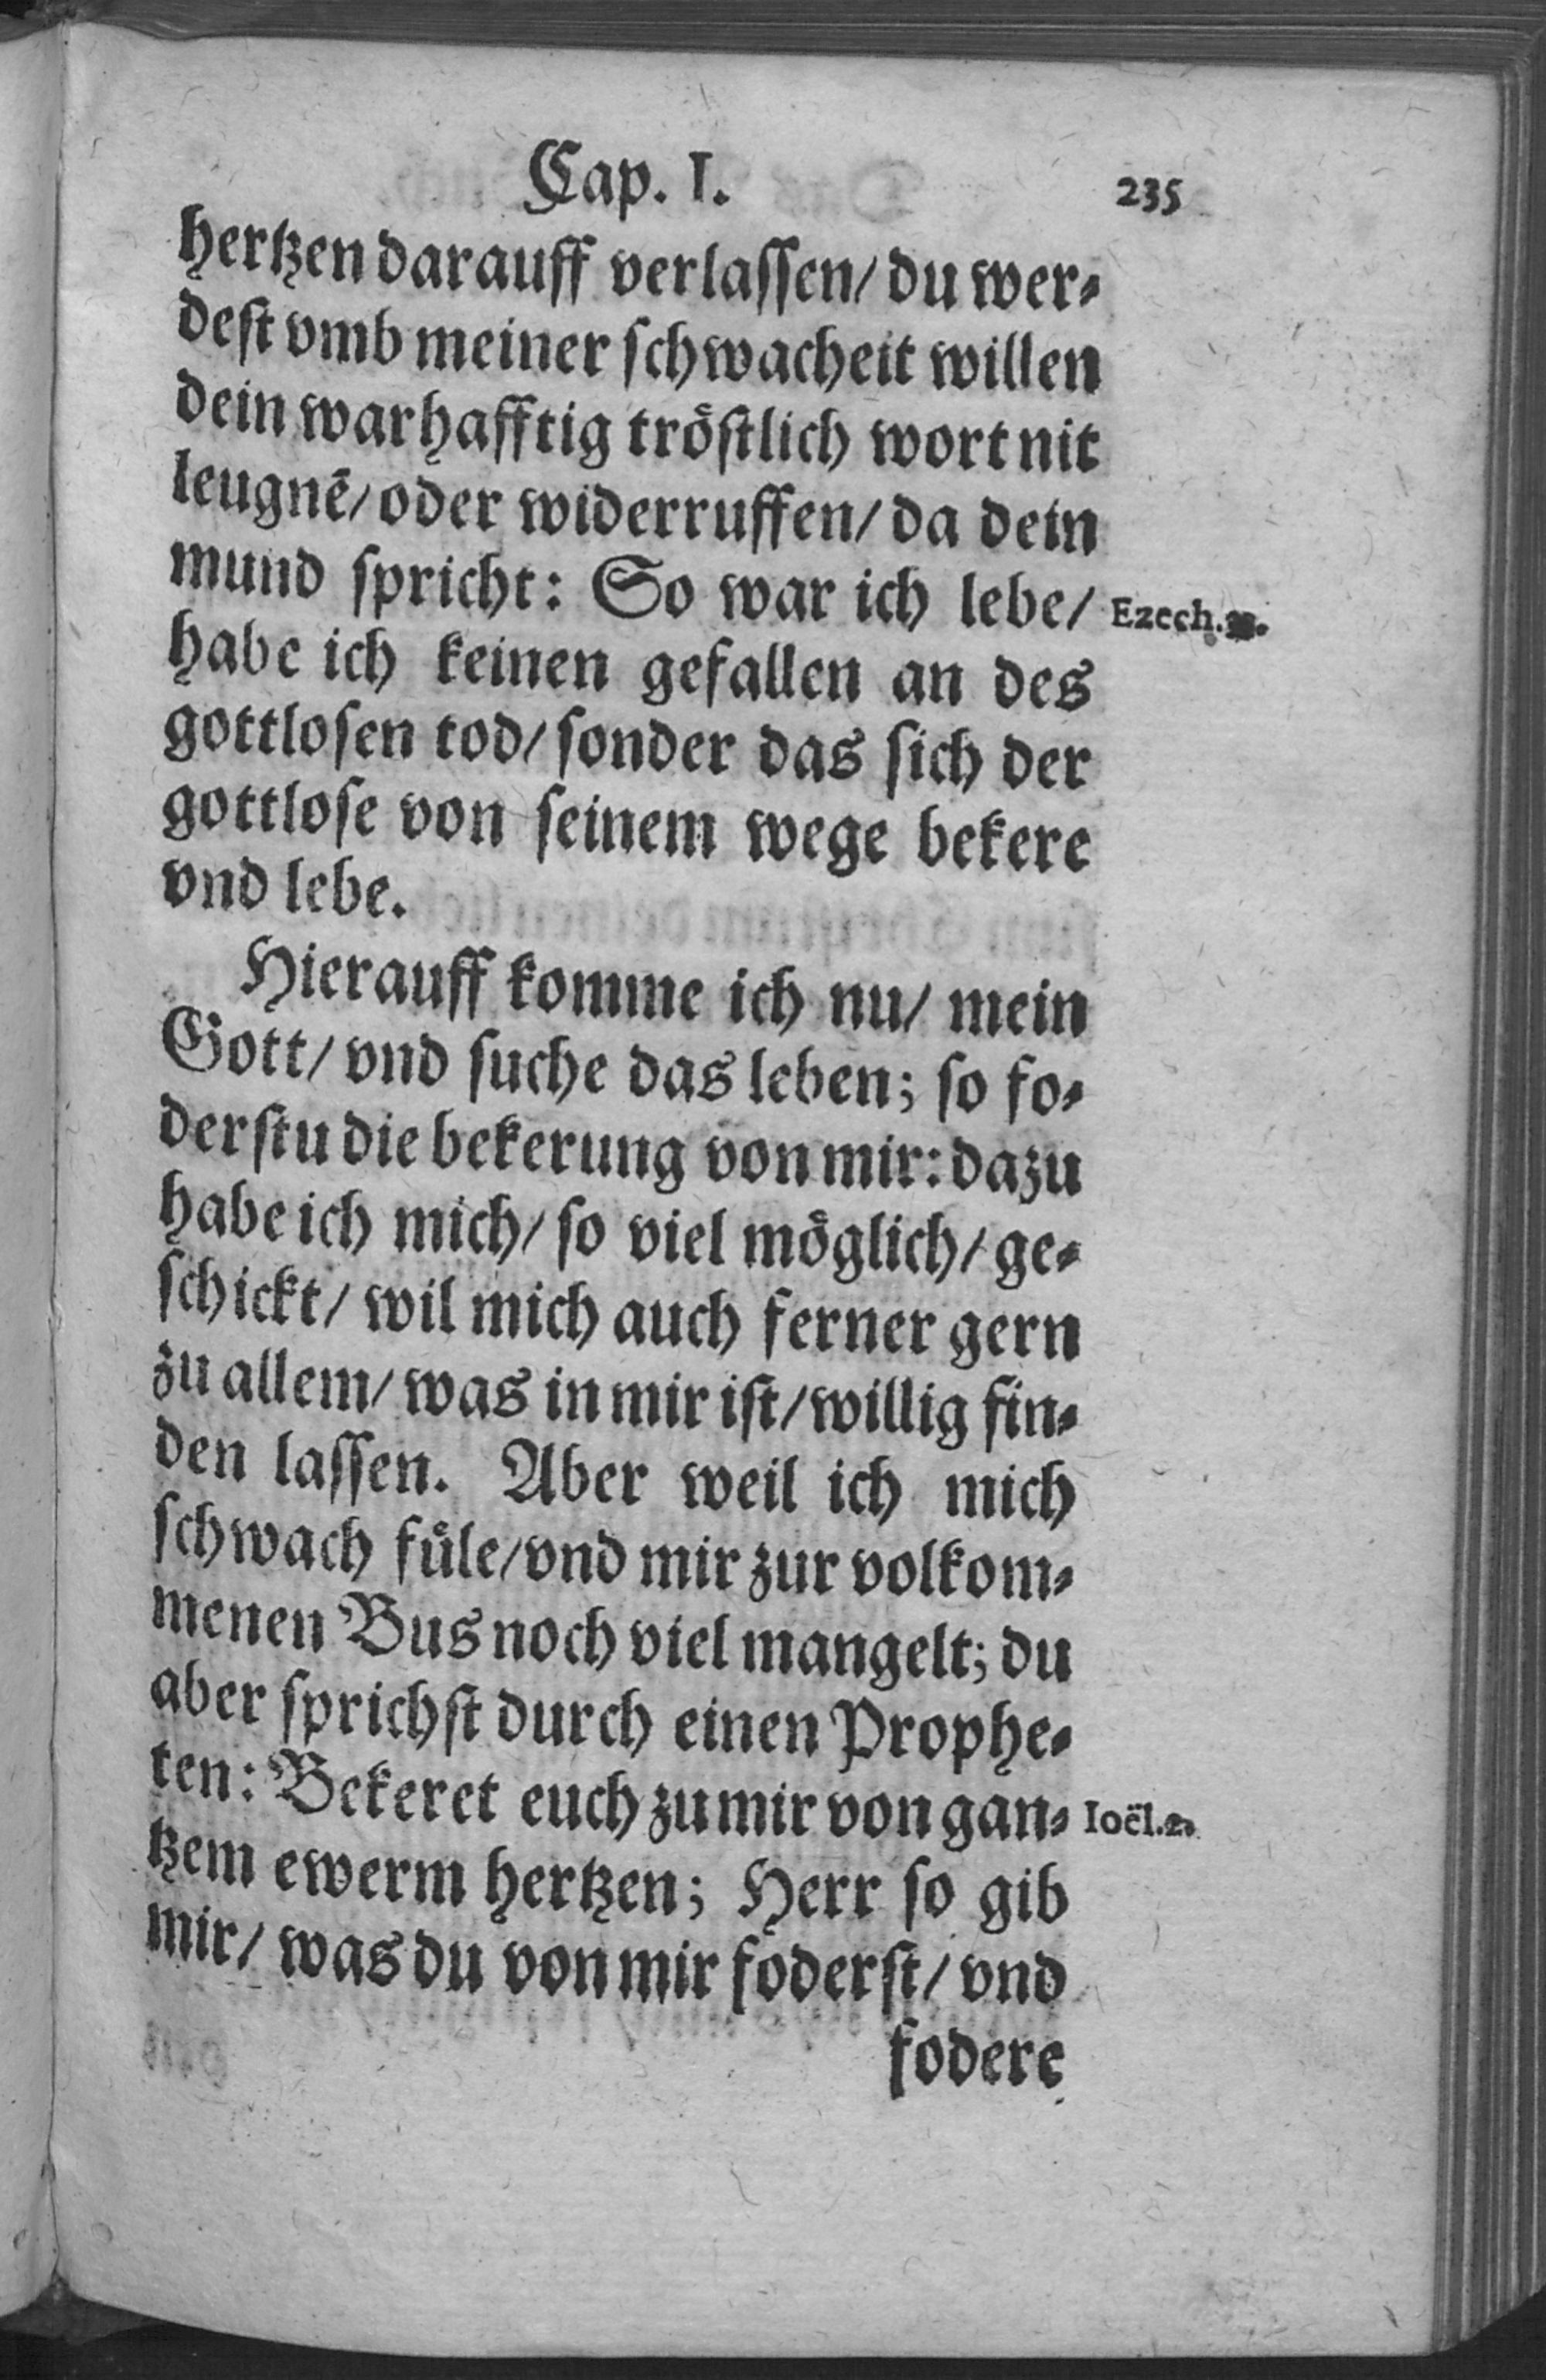 Cap. I.
235
hertzen darauff verlassen/ du wer⸗
dest vmb meiner schwacheit willen
dein warhafftig tröstlich wort nit
leugnē/ oder widerruffen/ da dein
mund spricht: So war ich lebe/
Ezech.
habe ich keinen gefallen an des
gottlosen tod/ sonder das sich der
gottlose von seinem wege bekere
vnd lebe.
Hierauff komme ich nu/ mein
Gott/ vnd suche das leben; so fo⸗
derstu die bekerung von mir: dazu
habe ich mich/ so viel möglich/ ge⸗
schickt/ wil mich auch ferner gern
zu allem/ was in mir ist/ willig fin⸗
den lassen. Aber weil ich mich
schwach füle/ vnd mir zur volkom⸗
menen Bus noch viel mangelt; du
aber sprichst durch einen Prophe⸗
ten: Bekeret euch zu mir von gan⸗
Ioël.2.
tzem ewerm hertzen; Herr so gib
mir/ was du von mir foderst/ vnd
fodere